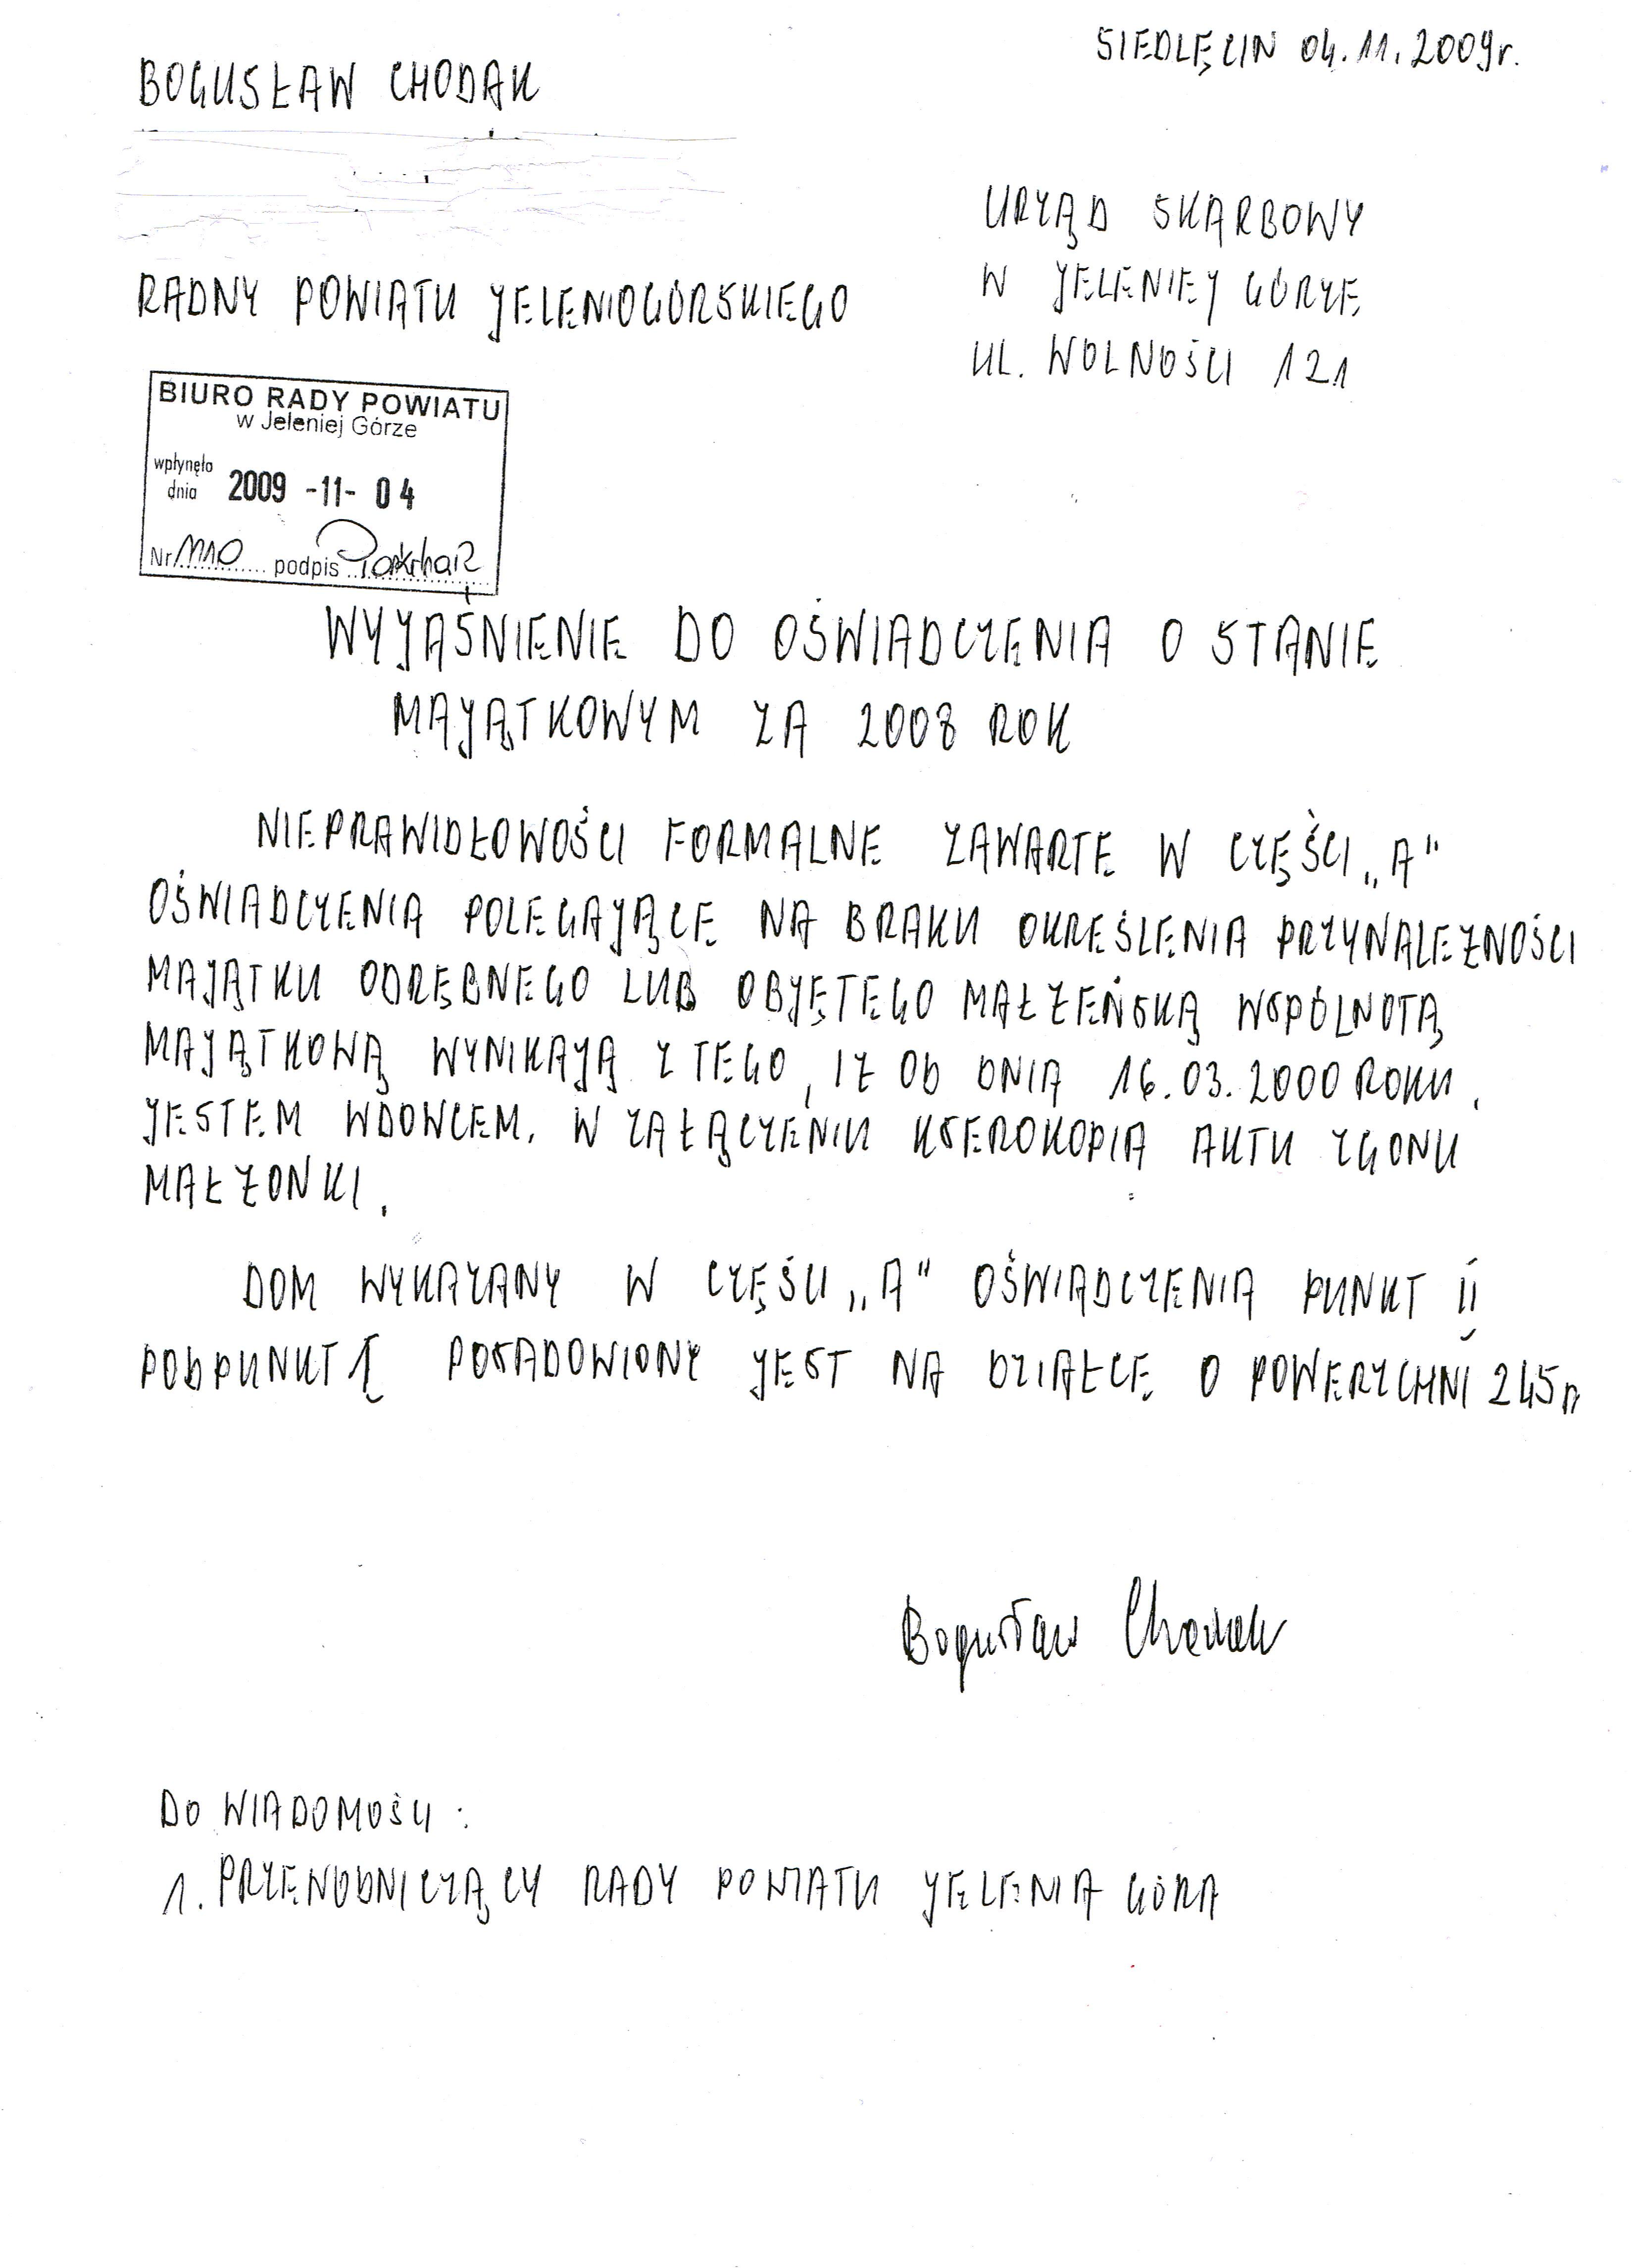 SIEDLĘCIN 04.11.2009r.
BOGUSŁAW CHODAK
URZĄD SKARBOWY
W JELENIEJ GÓRZE
UL. WOLNOŚCI 121
RADNY POWIATU JELENIOGÓRSKIEGO
BIURO RADY POWIATU
w Jeleniej Górze
wpłynęło
dnia 2009 -11- 04
Nr 1110 podpis
WYJAŚNIENIE DO OŚWIADCZENIA O STANIE
MAJĄTKOWYM ZA 2008 ROK
NIEPRAWIDŁOWOŚCI FORMALNE ZAWARTE W CZĘŚCI „A"
OŚWIADCZENIA POLEGAJĄCE NA BRAKU OKREŚLENIA PRZYNALEŻNOŚCI
MAJĄTKU ODRĘBNEGO LUB OBJĘTEGO MAŁŻEŃSKĄ WSPÓLNOTĄ
MAJĄTKOWĄ WYNIKAJĄ Z TEGO, IŻ OD DNIA 16.03.2000 ROKU
JESTEM WDOWCEM. W ZAŁĄCZENIU KSEROKOPIA AKTU ZGONU
MAŁŻONKI.
DOM WYKAZANY W CZĘŚCI „A" OŚWIADCZENIA PUNKT II
PODPUNKT 1 POSADOWIONY JEST NA DZIAŁCE O POWERZCHNI 245 m
Bogusław Chodak
DO WIADOMOŚCI :
1. PRZEWODNICZĄCY RADY POWIATU JELENIA GÓRA